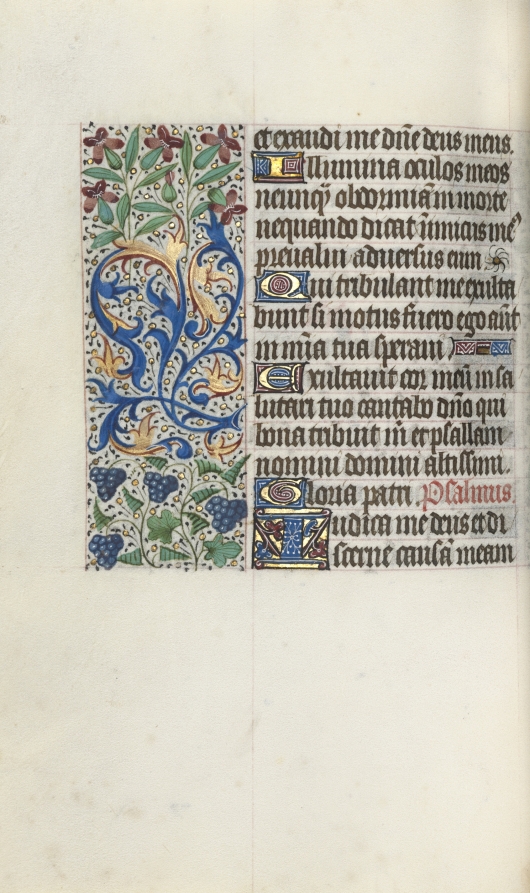 et exaudi me dñe deus meus.
Illumina oculos meos
neunqȝ obdormiā in morte
nequando dicat inimicus me⁹
preualui aduersus eum
Qui tribulant me exulta
bunt si motus fuero ego aūt
in mīa tua speraui
Exultauit cor meū in sa
lutari tuo cantabo dño qui
bona tribuit m̄ et psallam
nomini domini altissimi.
Gloria patri. Psalmus.
Iudica me deus et di
scerne causā meam